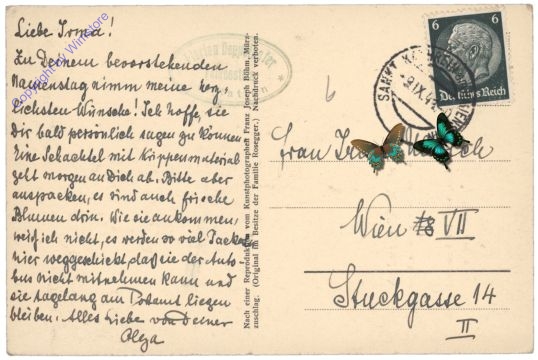 Liebe Irma!
Zu Deinem bevorstehenden
Namenstag nimm meine herz-
lichsten Wünsche! Ich hoffe sie
Dir bald persönlich sagen zu können
Eine Schachtel mit Krippenmaterial
geht morgen an Dich ab. Bitte aber
auspacken, es sind auch frische
Blumen drin. Wie sie ankommen,
weiß ich nicht, es werden so viel Packe
hier weggeschickt, daß sie der Auto-
bus nicht mitnehmen kann und
sie tagelang am Postamt liegen
bleiben. Alles Liebe von Deiner
Olga
Copyright by Winstore
Nach einer Reproduktion vom Kunstphotographen Franz Joseph Böhm, Mürz-
zuschlag. (Original im Besitze der Familie Rosegger.) Nachdruck verboten.
6 6
Deutsches Reich
SANKT
Frau
Wien 18 VII
Stuckgasse 14
II